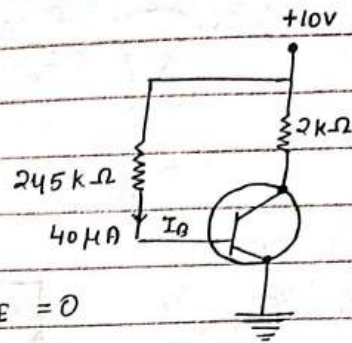 +10V
2kΩ
245 kΩ
40μA I_B
E = 0